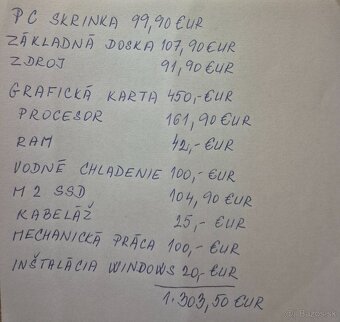 PC SKRINKA 99,90 EUR
ZÁKLADNÁ DOSKA 107,90 EUR
ZDROJ 91,90 EUR
GRAFICKÁ KARTA 450,- EUR
PROCESOR 161,90 EUR
RAM 42,- EUR
VODNÉ CHLADENIE 100,- EUR
M2 SSD 104,90 EUR
KABELÁŽ 25,- EUR
MECHANICKÁ PRÁCA 100,- EUR
INŠTALÁCIA WINDOWS 20,- EUR
1.303,50 EUR
Bazos.sk